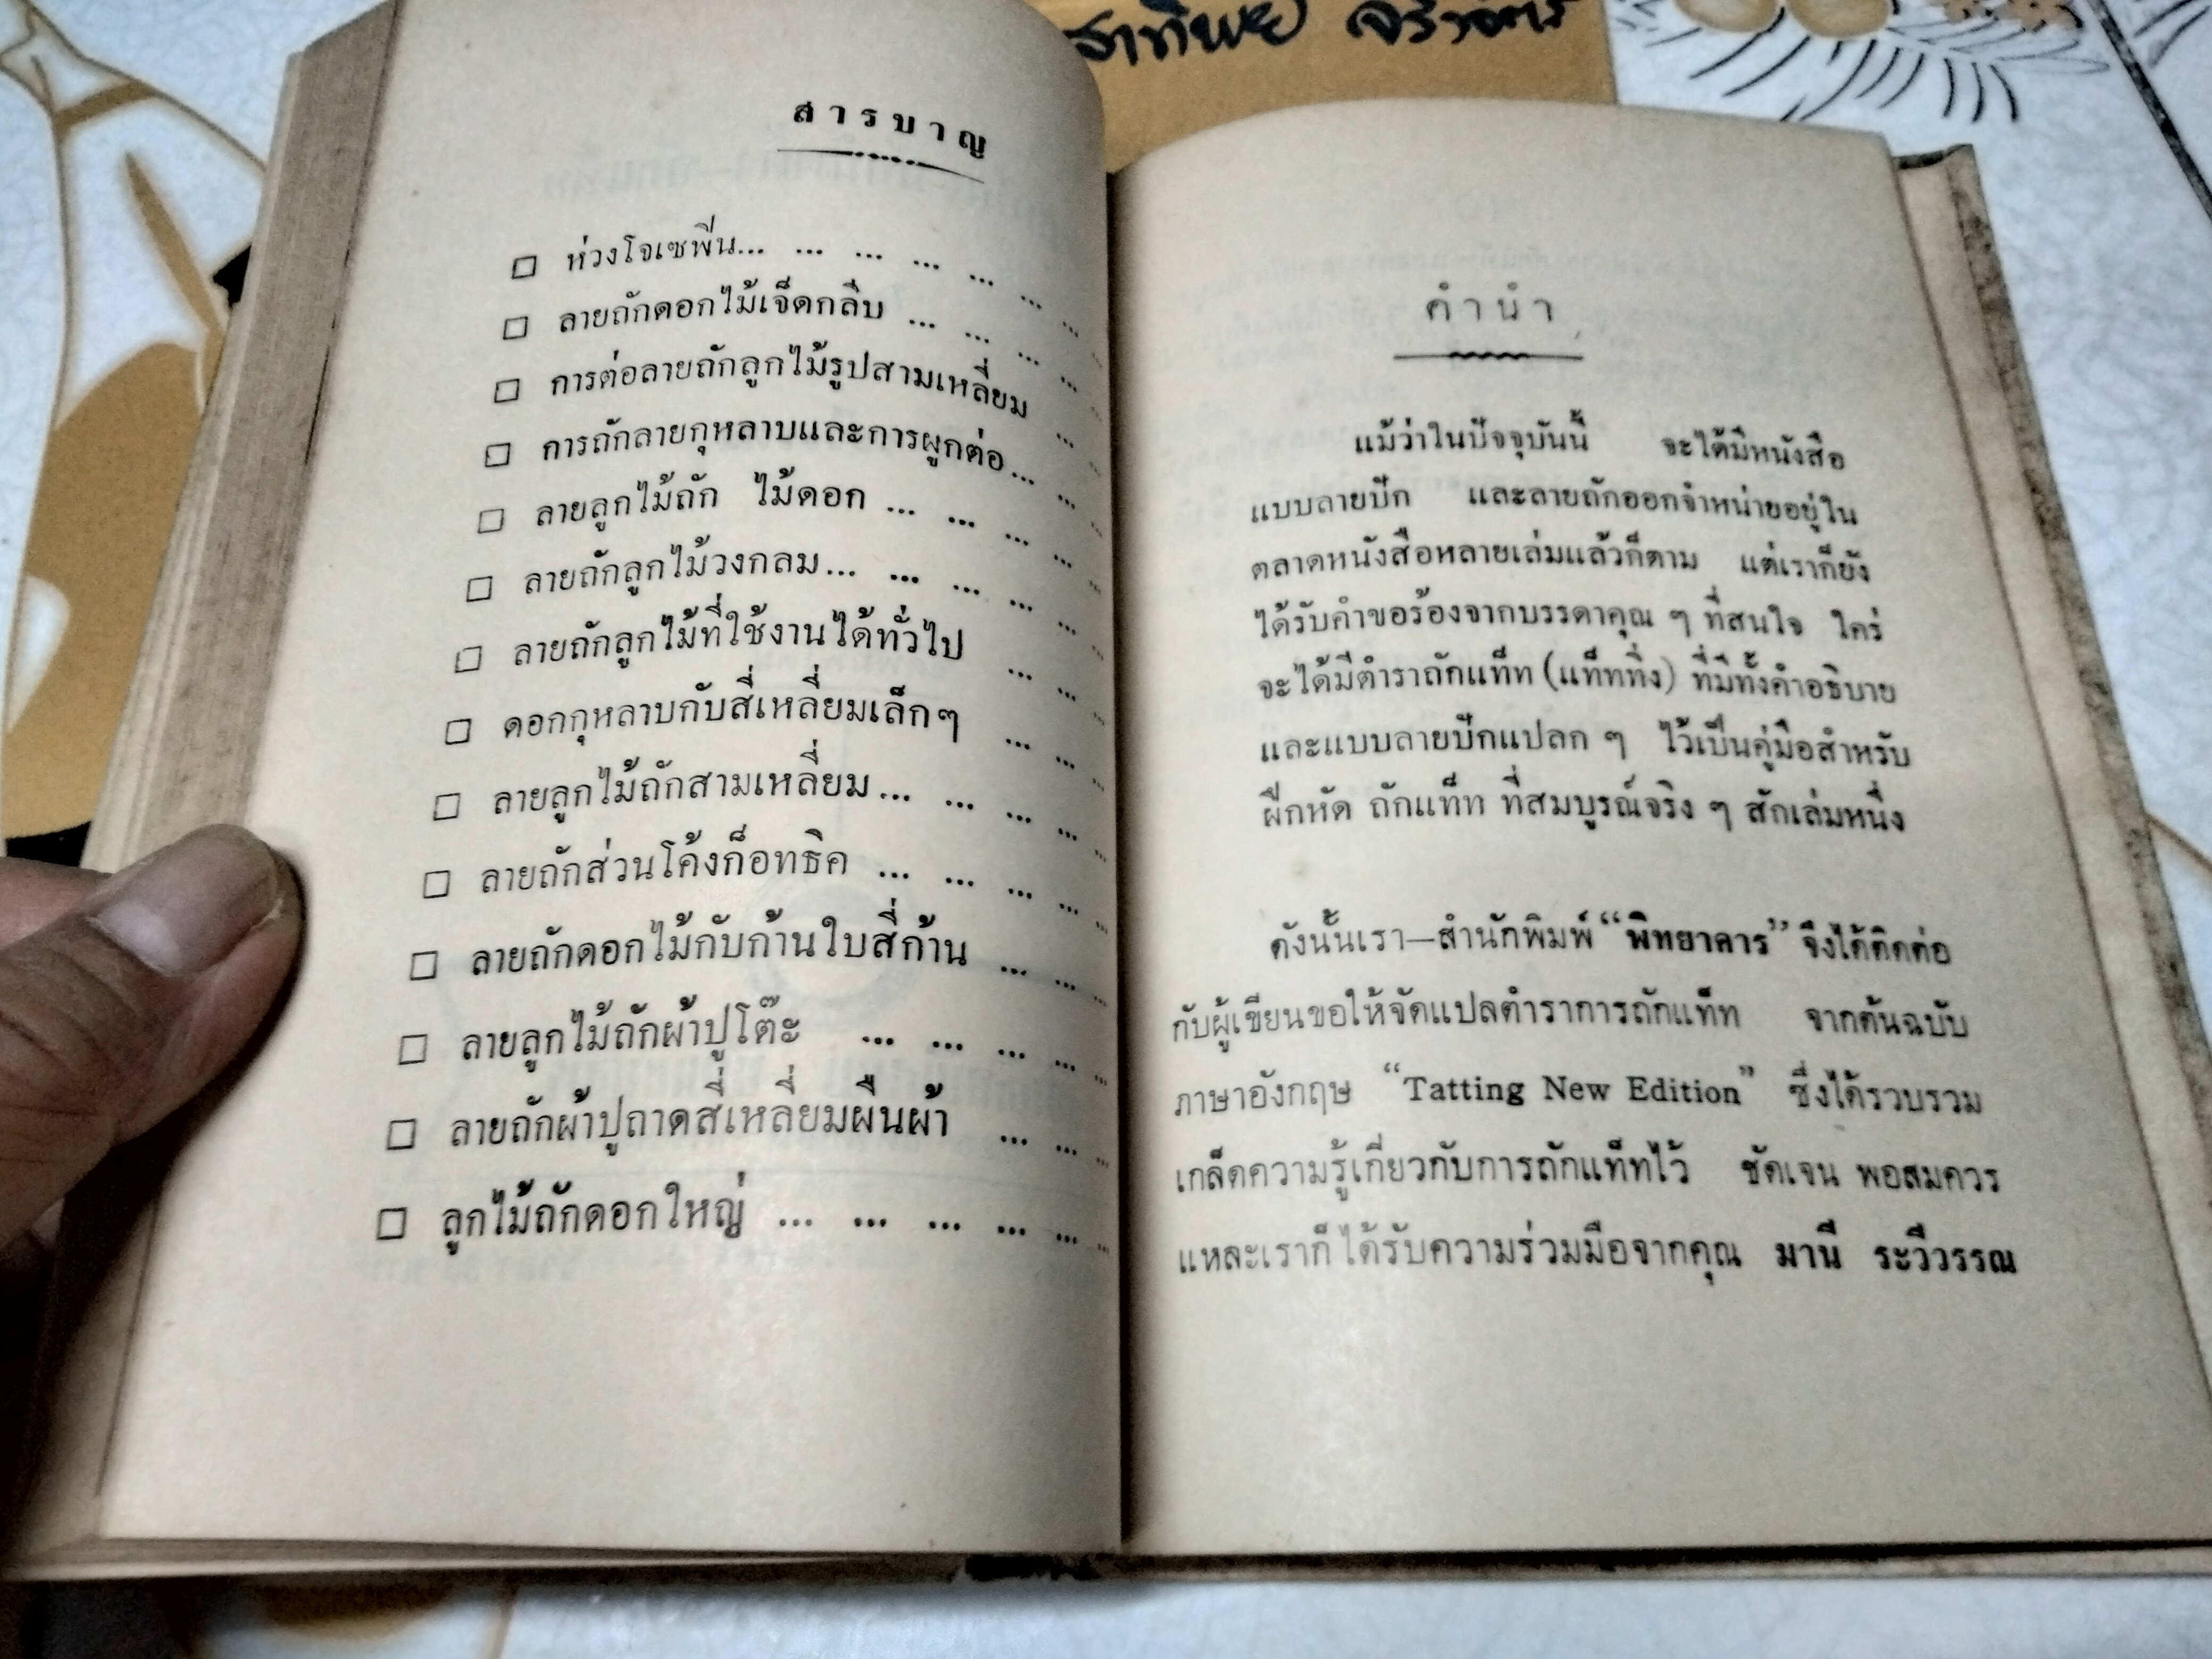 สารบาญ
□ ห่วงโจเซฟิน... ... ... ... ... ... ...
□ ลายถักดอกไม้เจ็ดกลีบ ... ... ... ... ...
□ การต่อลายถักลูกไม้รูปสามเหลี่ยม ... ...
□ การถักลายกุหลาบและการผูกต่อ... ... ...
□ ลายลูกไม้ถัก ไม้ดอก ... ... ... ... ...
□ ลายถักลูกไม้วงกลม... ... ... ... ... ...
□ ลายถักลูกไม้ที่ใช้งานได้ทั่วไป ... ... ...
□ ดอกกุหลาบกับสี่เหลี่ยมเล็กๆ ... ... ...
□ ลายลูกไม้ถักสามเหลี่ยม... ... ... ... ...
□ ลายถักส่วนโค้งก็อทธิค ... ... ... ... ...
□ ลายถักดอกไม้กับก้านใบสี่ก้าน ... ... ...
□ ลายลูกไม้ถักผ้าปูโต๊ะ ... ... ... ... ...
□ ลายถักผ้าปูถาดสี่เหลี่ยมผืนผ้า ... ... ...
□ ลูกไม้ถักดอกใหญ่ ... ... ... ... ... ...
คำนำ
แม้ว่าในปัจจุบันนี้ จะได้มีหนังสือ
แบบลายปัก และลายถักออกจำหน่ายอยู่ใน
ตลาดหนังสือหลายเล่มแล้วก็ตาม แต่เราก็ยัง
ได้รับคำขอร้องจากบรรดาคุณ ๆ ที่สนใจ ใคร่
จะได้มีตำราถักแท็ท (แท็ททิ่ง) ที่มีทั้งคำอธิบาย
และแบบลายปักแปลก ๆ ไว้เป็นคู่มือสำหรับ
ฝึกหัด ถักแท็ท ที่สมบูรณ์จริง ๆ สักเล่มหนึ่ง
ดังนั้นเรา—สำนักพิมพ์ “พิทยาคาร” จึงได้ติดต่อ
กับผู้เขียนขอให้จัดแปลตำราการถักแท็ท จากต้นฉบับ
ภาษาอังกฤษ “Tatting New Edition” ซึ่งได้รวบรวม
เกล็ดความรู้เกี่ยวกับการถักแท็ทไว้ ชัดเจน พอสมควร
แหละเราก็ได้รับความร่วมมือจากคุณ มานี ระวีวรรณ